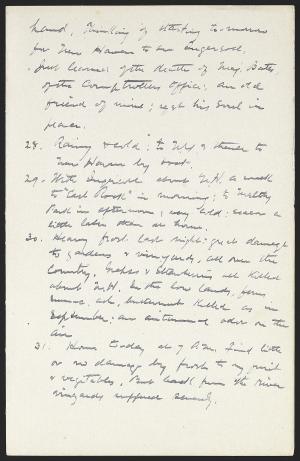 hand, Thinking of starting to-morrow
for New Haven to see Ingersoll.
Just learned of the death of Maj. Bates
of the Comptrollers Office; an old
friend of mine; rest his soul in
peace.
28. Rainy & cold; to N.Y. & thence to
New Haven by boat.
29. With Ingersoll about N.H. a walk
to "East Rock" in morning; to
Park in afternoon; very cold; season a
little later than at home.
30. Heavy frost last night; great damage
to gardens & vineyards, all over the
Country. Grapes & Strawberries all killed
about N.H. In the low lands, ferns,
sumac, ash, butternut killed as in
September; an autumnal odor on the
air.
31. Home to-day at 7 P.M. find little
or no damage by frosts to my fruit
& vegetables, but back from the river
vineyards suffered severely.